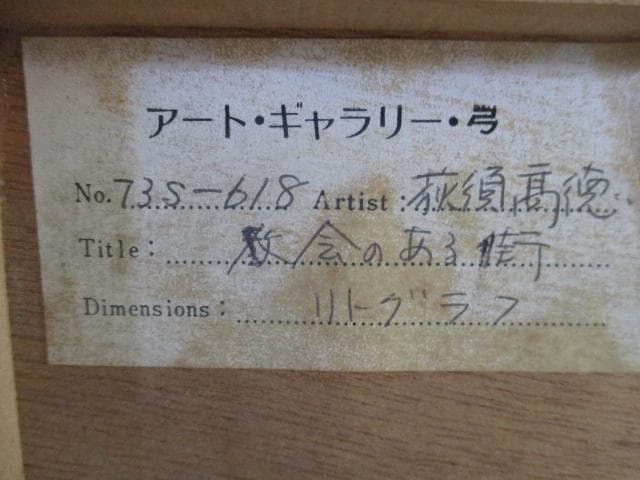 アート・ギャラリー・弓
No. 73S-618 Artist: 荻須高徳
Title: 教会のある街
Dimensions: リトグラフ